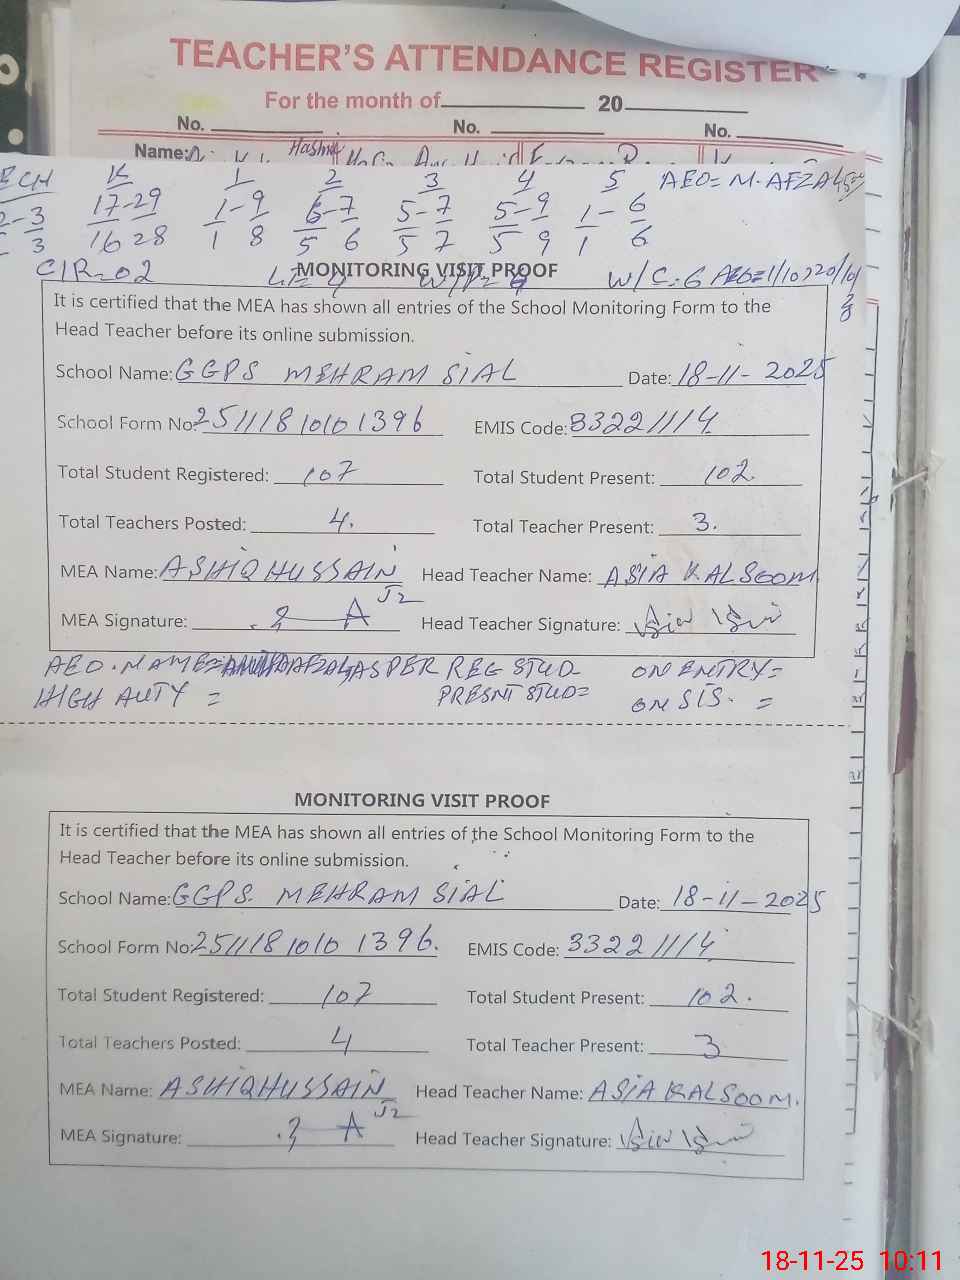 TEACHER'S ATTENDANCE REGISTER
For the month of 20
No. No. No.
Name: Hashmat
ECH K 1 2 3 4 5 AEO= M. AFZAL
2-3 17-29 1-9 6-7 5-7 5-9 1-6
3 16 28 1 8 5 6 5 7 5 9 1 6
CIR-02 MONITORING VISIT PROOF W/C.6 AEO=1/10>20/10
It is certified that the MEA has shown all entries of the School Monitoring Form to the
Head Teacher before its online submission.
School Name: GGPS MEHRAM SIAL Date: 18-11-2025
School Form No: 2511181010 1396 EMIS Code: 33221114
Total Student Registered: 107 Total Student Present: 102.
Total Teachers Posted: 4. Total Teacher Present: 3.
MEA Name: ASHIQ HUSSAIN Head Teacher Name: ASIA KALSOOM
MEA Signature: Head Teacher Signature:
AEO.NAME= AS PER REG STUD- ON ENTRY=
HIGH AUTY = PRESNT STUD= ON SIS. =
MONITORING VISIT PROOF
It is certified that the MEA has shown all entries of the School Monitoring Form to the
Head Teacher before its online submission.
School Name: GGPS. MEHRAM SIAL Date: 18-11-2025
School Form No: 2511181010 1396. EMIS Code: 33221114
Total Student Registered: 107 Total Student Present: 102.
Total Teachers Posted: 4 Total Teacher Present: 3
MEA Name: ASHIQ HUSSAIN Head Teacher Name: ASIA KALSOOM.
MEA Signature: Head Teacher Signature:
18-11-25 10:11